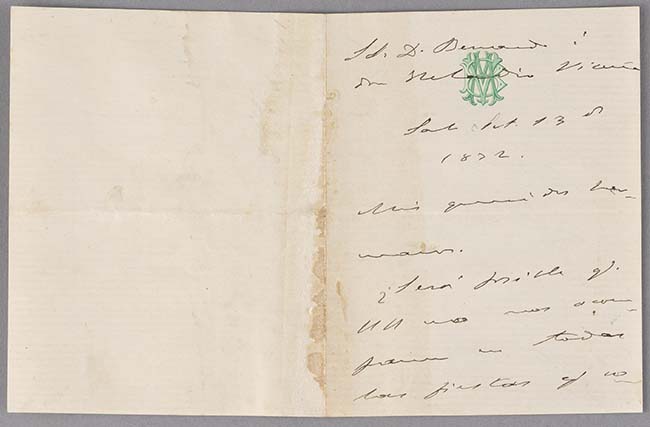 Sr. D. Bernardo i
don Nicolas Vicuña
Sept. 13 de
1872.
Mis queridos her-
manos.
¿Será posible q.
UU no nos acom-
pañen en todas
las fiestas q